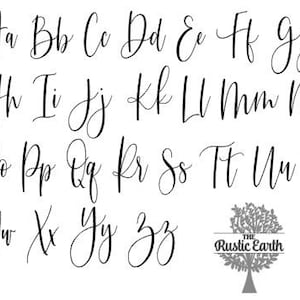 a Bb Cc Dd Ee Ff G
h Ii Jj Kk Ll Mm
o Pp Qq Rr Ss Tt Uu
w Xx Yy Zz
THE
Rustic Earth